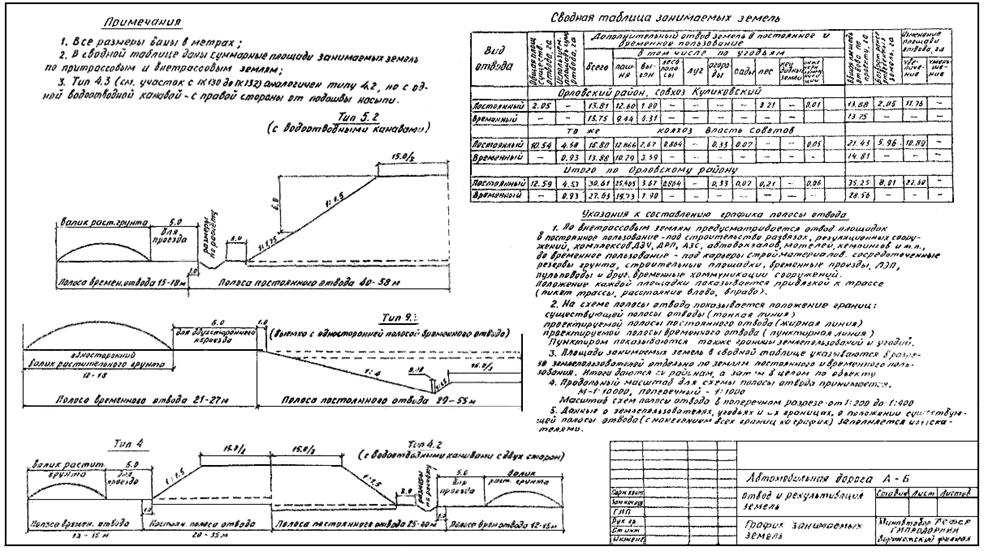 Примечания
1. Все размеры даны в метрах;
2. В сводной таблице даны суммарные площади занимаемых земель
по притрассовым и внетрассовым землям;
3. Тип 4.3 (см. участок с ПК130 до ПК132) аналогичен типу 4.2, но с од-
ной водоотводной канавой - с правой стороны от подошвы насыпи.
Тип 5.2
(с водоотводными канавами)
15.0/2
6.0
1:1.5
1:1.75
валик раст. грунта
5.0
для
проезда
размеры
по расчёту
Полоса времен. отвода 15-18 м
Полоса постоянного отвода 40-58 м
(выемка с односторонней полосой временного отвода)
для одностороннего
проезда
1:4
односторонний
валик растительного грунта
Полоса временного отвода 21-27 м
Полоса постоянного отвода 29-55 м
Тип 4
Тип 4.2
(с водоотводными канавами с двух сторон)
15.0/2
15.0/2
валик растит.
грунта
5.0
для
проезда
1:1.5
1:1.5
размеры
по расчёту
5.0
для
проезда
валик
раст. грунта
Полоса времен. отвода
Полоса постоянного отвода 25-40 м
Полоса врем отвода 12-15 м
Сводная таблица занимаемых земель
Вид
отвода
Дополнительный отвод земель в постоянное и
временное пользование
в том числе по угодьям
Всего
паш-
ня
вы-
гон
лесо
полосы
луг
огоро-
ды
сады
лес
Изменение
площади
отвода, га
Орловский район, совхоз Куликовский
Постоянный 2.05 — 13.81 12.60 1.00 — — — — 0.21 — 0.01 13.88 2.05 11.76 —
Временный — — 13.75 9.44 4.31 — — — — — — — 13.75 — — —
То же колхоз Власть Советов
Постоянный 10.54 4.58 16.80 12.866 2.67 0.864 — 0.33 0.07 — — 0.05 21.43 5.96 10.89 —
Временный — 0.93 13.88 10.29 3.59 — — — — — — — 14.81 — — —
Итого по Орловскому району
Постоянный 12.59 4.57 30.61 25.405 3.67 0.864 — 0.33 0.07 0.21 — 0.06 35.25 8.01 22.60 —
Временный — 0.93 27.63 19.73 7.90 — — — — — — — 28.56 — — —
Указания к составлению графика полосы отвода
1. По внетрассовым землям предусматривается отвод площадок
в постоянное пользование - под строительство развязок, регуляционных соору-
жений, комплексов ДЭУ, ДРП, АЗС, автовокзалов, мотелей, кемпингов и т.п.,
во временное пользование - под карьеры стройматериалов, сосредоточенные
резервы грунта, строительные площадки, временные проезды, ЛЭП,
пульповоды и друг. временные коммуникации сооружений.
Положение каждой площадки показывается привязкой к трассе
(пикет трассы, расстояние влево, вправо).
2. На схеме полосы отвода показывается положение границ:
существующей полосы отвода (тонкая линия)
проектируемой полосы постоянного отвода (жирная линия)
проектируемой полосы временного отвода (пунктирная линия)
Пунктиром показываются также границы землепользований и угодий.
3. Площади занимаемых земель в сводной таблице указываются в разре-
зе землепользователей отдельно по землям постоянного и временного поль-
зования. Итоги даются по районам, а затем в целом по объекту
4. Продольный масштаб для схемы полосы отвода принимается:
М-1:10000, поперечный - 1:1000
Масштаб схем полосы отвода в поперечном разрезе от 1:200 до 1:400
5. Данные о землепользователях, угодьях и их границах, о положении существую-
щей полосы отвода (с нанесением всех границ на график) заполняется изыска-
телями.
Автомобильная дорога А - Б
отвод и рекультивация
земель
График занимаемых
земель
Стадия Лист Листов
Минавтодор РСФСР
ГИПРОДОРНИИ
Воронежский филиал
ГИП
Рук. гр.